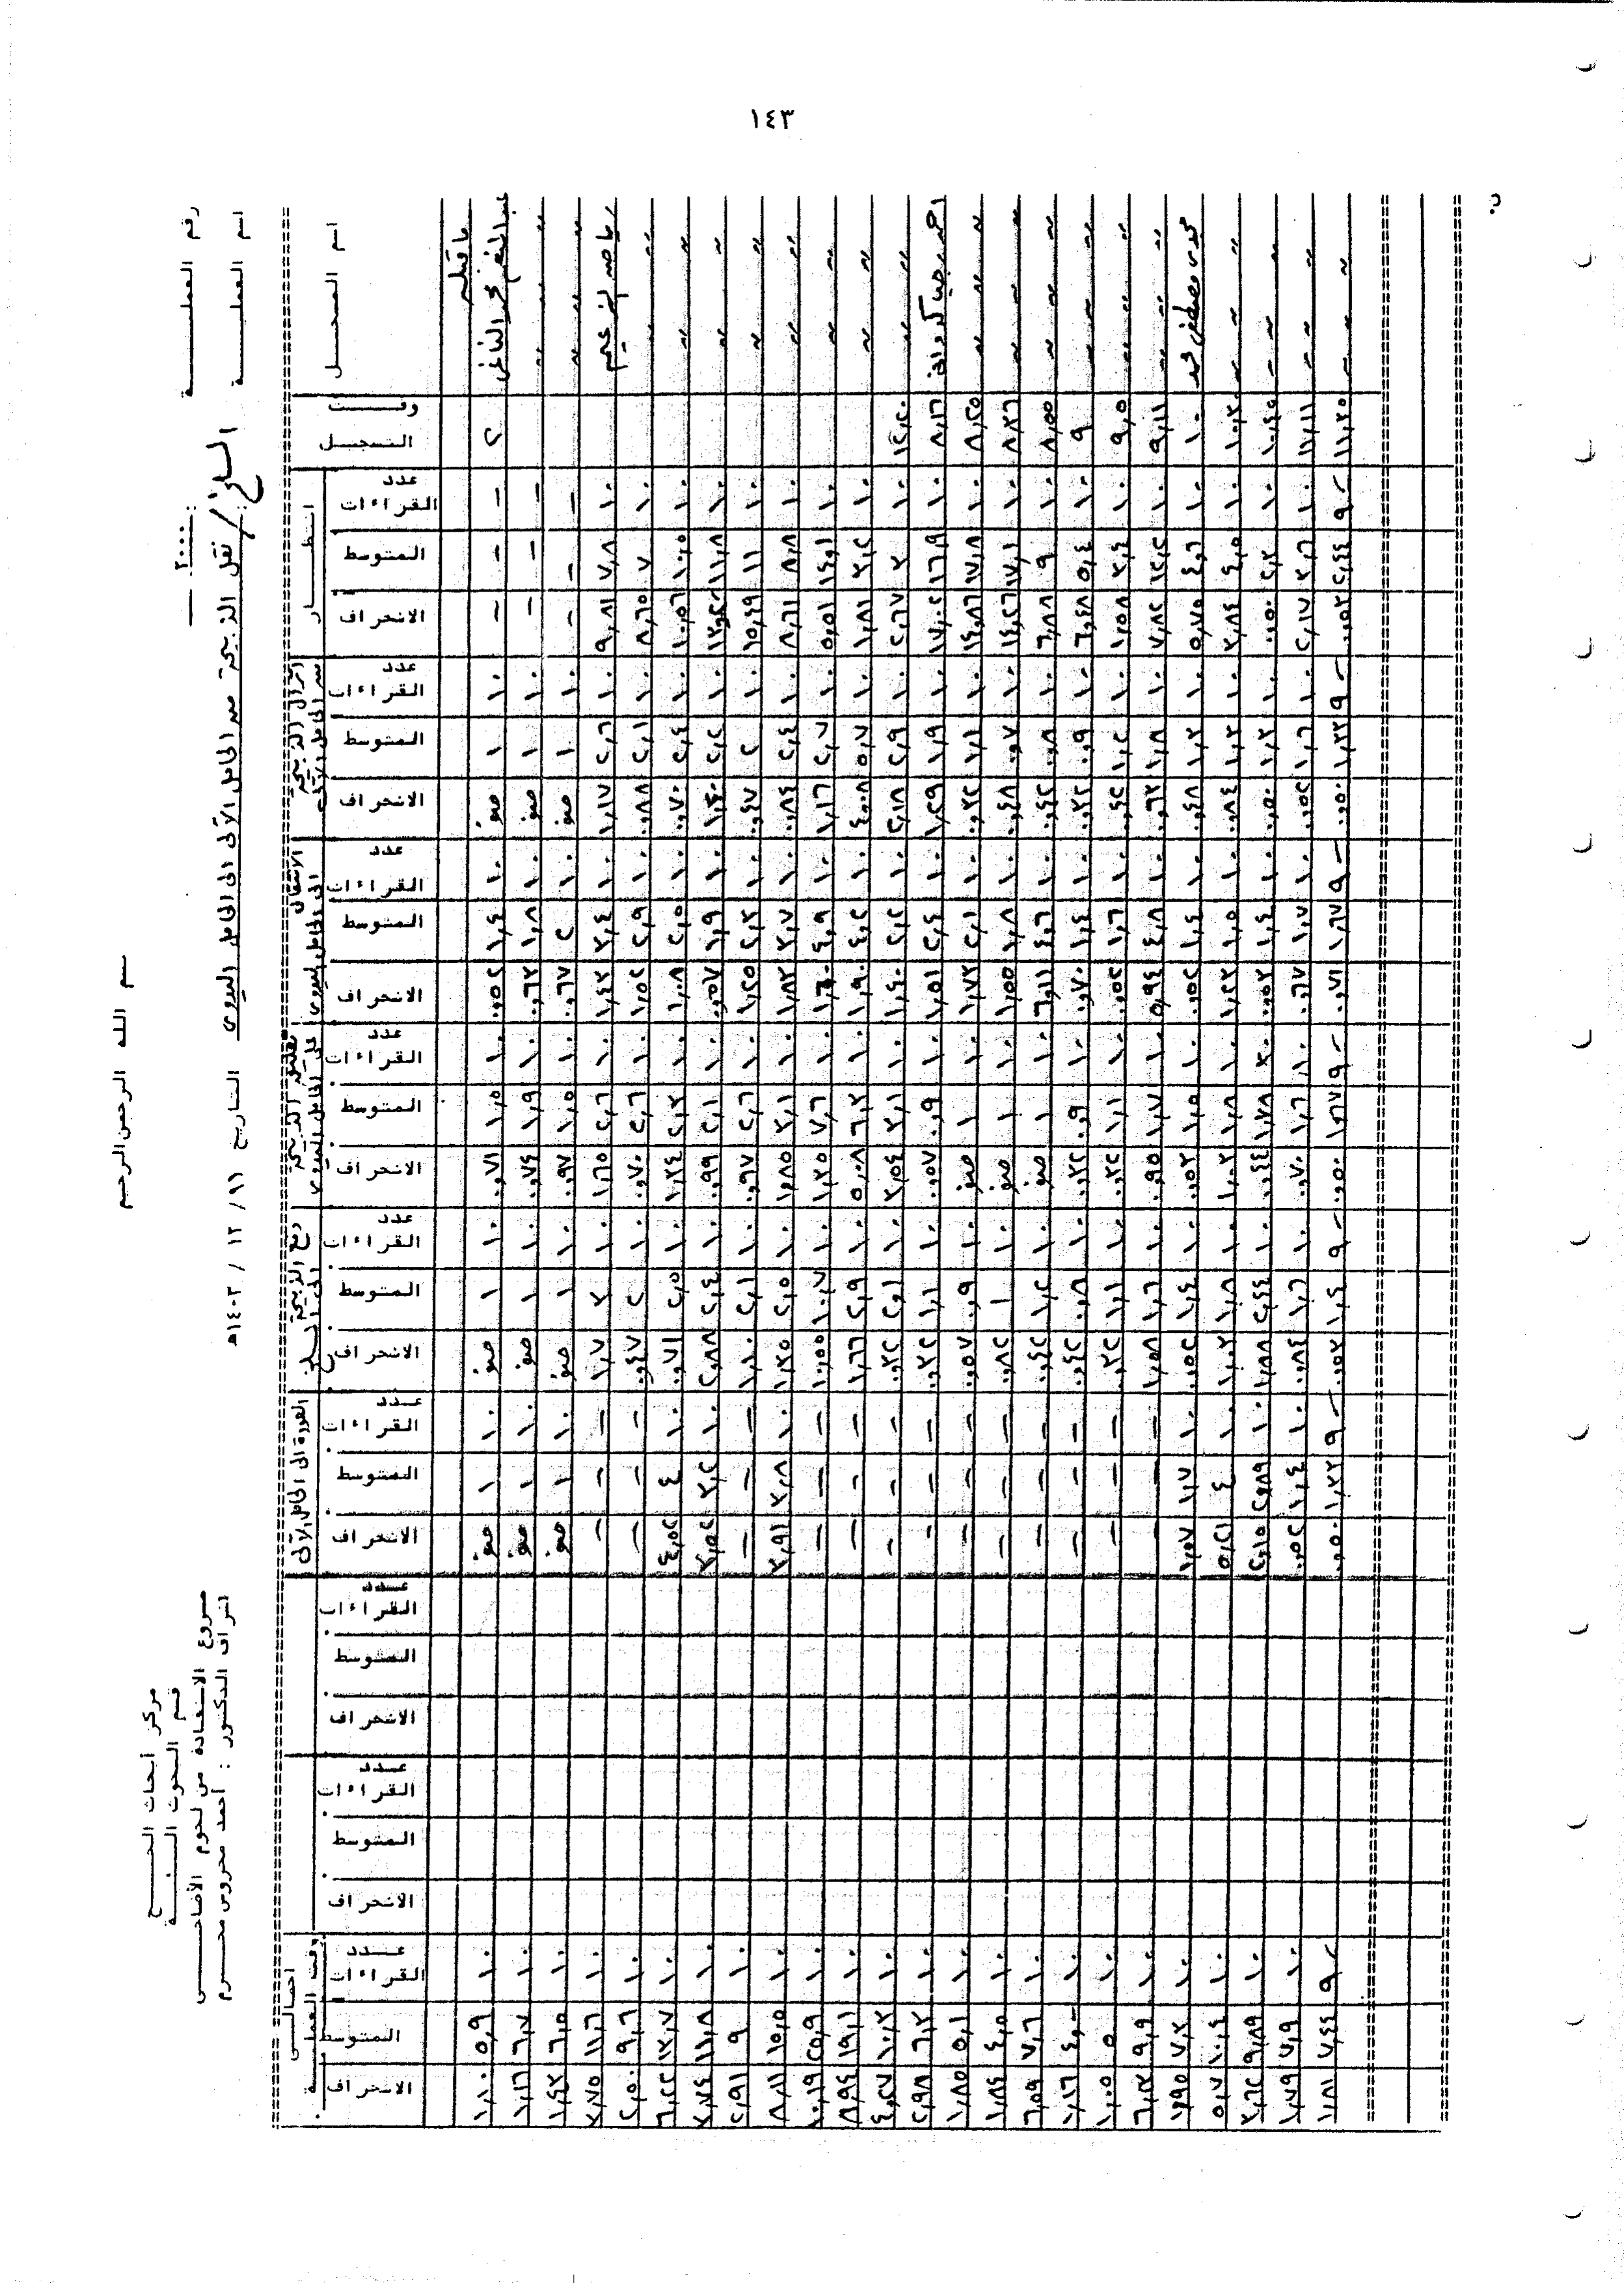 ١٤٣
بسم الله الرحمن الرحيم
مركز أبحاث الحج
قسم البحوث البيئية
مشروع الاستفادة من لحوم الأضاحي
اشراف الدكتور : أحمد محروس محرم
رقم العملية : ٣٠٠٠
اسم العملية : السلخ / نقل الذبيحة من الحامل الآلى الى الحامل اليدوى التاريخ ١١ / ١٢ / ١٤٠٣هـ
اسم المسجل وقت التسجيل انتظار انزال الذبيحة من الحامل الآلى الانتقال الى الحامل اليدوى تعليق الذبيحة على الحامل اليدوى دفع الذبيحة الى السلخ العودة الى الحامل الآلى اجمالى وقت العملية
عدد القراءات المتوسط الانحراف عدد القراءات المتوسط الانحراف عدد القراءات المتوسط الانحراف عدد القراءات المتوسط الانحراف عدد القراءات المتوسط الانحراف عدد القراءات المتوسط الانحراف عدد القراءات المتوسط الانحراف عدد القراءات المتوسط الانحراف عدد القراءات المتوسط الانحراف
ما قبله
عبد المنعم محمد ٢ – – – ١٠ ١ صفر ١٠ ١,٤ ٠,٥٢ ١٠ ١,٥ ٠,٧١ ١٠ ١ صفر ١٠ ١ صفر ١٠ ٥,٩ ١,١٠
〃 〃 – – – ١٠ ١ صفر ١٠ ١,٨ ٠,٦٣ ١٠ ١,٩ ٠,٧٤ ١٠ ١ صفر ١٠ ١ صفر ١٠ ٦,٧ ١,١٦
〃 〃 – – – ١٠ ١ صفر ١٠ ٢ ٠,٦٧ ١٠ ١,٥ ٠,٩٧ ١٠ ١ صفر ١٠ ١ صفر ١٠ ٦,٥ ١,٤٣
رياض ١٠ ٧,٨ ٩,٨١ ١٠ ٢,٦ ١,١٧ ١٠ ٣,٤ ١,٤٣ ١٠ ٢,٦ ١,٦٥ ١٠ ٣ ١,٧ – – – ١٠ ١١,٦ ٣,٧٥
〃 〃 ١٠ ٧ ٨,٦٥ ١٠ ٢,١ ٠,٨٨ ١٠ ٢,٩ ١,٥٢ ١٠ ٢,٦ ٠,٧٠ ١٠ ٢ ٠,٤٧ – – – ١٠ ٩,٦ ٢,٥٠
〃 〃 ١٠ ١٠,٥ ١٠,٥٦ ١٠ ٢,٤ ٠,٧٠ ١٠ ٢,٥ ١,٠٨ ١٠ ٢,٣ ١,٣٤ ١٠ ٢,٥ ٠,٧١ ١٠ ٤ ٤,٥٢ ١٠ ١٣,٧ ٦,٢٢
〃 〃 ١٠ ١١,٨ ١٣,٢٠ ١٠ ٢,٢ ١,٤٠ ١٠ ١,٩ ٠,٥٧ ١٠ ٢,١ ٠,٩٩ ١٠ ٢,٤ ٢,٨٨ ١٠ ٣,٢ ٣,٥٢ ١٠ ١١,٨ ٧,٧٤
〃 〃 ١٠ ١١ ١٥,٤٩ ١٠ ٢ ٠,٤٧ ١٠ ٢,٣ ١,٢٥ ١٠ ٢,٦ ٠,٦٧ ١٠ ٢,١ ١,١٠ – – – ١٠ ٩ ٢,٩١
〃 〃 ١٠ ٨,٨ ٨,٦١ ١٠ ٢,٤ ٠,٨٤ ١٠ ٣,٧ ١,٨٣ ١٠ ٣,١ ١,٨٥ ١٠ ٢,٥ ١,٣٥ ١٠ ٣,٨ ٣,٩١ ١٠ ١٥,٥ ٨,١١
〃 〃 ١٠ ١٤,١ ٥,٥١ ١٠ ٢,٧ ١,١٦ ١٠ ٤,٩ ١,٦٠ ١٠ ٧,٦ ١,٣٥ ١٠ ١٠,٧ ١٠,٥٥ – – – ١٠ ٢٥,٩ ١٠,١٩
〃 〃 ١٠ ٣,٢ ١,٨١ ١٠ ٥,٧ ٤,٠٨ ١٠ ٤,٢ ١,٩٠ ١٠ ٦,٣ ٥,٠٨ ١٠ ٢,٩ ١,٦٦ – – – ١٠ ١٩,١ ٨,٩٤
〃 〃 ١٢,٢٠ ١٠ ٣ ٢,٦٧ ١٠ ٢,٩ ٢,١٨ ١٠ ٢,٢ ١,٤٠ ١٠ ٣,١ ٣,٥٤ ١٠ ٢,١ ٠,٣٢ – – – ١٠ ١٠,٣ ٤,٢٧
احمد رجب ٨,١٦ ١٠ ١٦,٩ ١٧,٠٢ ١٠ ١,٩ ١,٢٩ ١٠ ٢,٤ ١,٥١ ١٠ ٠,٩ ٠,٥٧ ١٠ ١,١ ٠,٣٢ – – – ١٠ ٦,٣ ٢,٩٨
〃 〃 〃 ٨,٢٥ ١٠ ١٧,٨ ١٤,٨٦ ١٠ ١,١ ٠,٣٢ ١٠ ٢,١ ١,٧٣ ١٠ ١ صفر ١٠ ٠,٩ ٠,٥٧ – – – ١٠ ٥,١ ١,٨٥
〃 〃 〃 ٨,٣٦ ١٠ ١٧,١ ١٤,٢٦ ١٠ ٠,٧ ٠,٤٨ ١٠ ١,٨ ١,٥٥ ١٠ ١ صفر ١٠ ١ ٠,٨٢ – – – ١٠ ٤,٥ ١,٨٤
〃 〃 〃 ٨,٥٥ ١٠ ٩ ٦,٨٨ ١٠ ٠,٨ ٠,٤٢ ١٠ ٤,٦ ٦,١١ ١٠ ١ صفر ١٠ ١,٢ ٠,٤٢ – – – ١٠ ٧,٦ ٦,٥٩
〃 〃 〃 ٩ ١٠ ٥,٤ ٦,٤٨ ١٠ ٠,٩ ٠,٣٢ ١٠ ١,٤ ٠,٧٠ ١٠ ٠,٩ ٠,٣٢ ١٠ ٠,٨ ٠,٤٢ – – – ١٠ ٤,٠ ١,١٦
〃 〃 〃 ٩,٥ ١٠ ٢,٤ ١,٥٨ ١٠ ١,٢ ٠,٤٢ ١٠ ١,٦ ٠,٥٢ ١٠ ١,١ ٠,٣٢ ١٠ ١,١ ٠,٣٢ – – – ١٠ ٥ ١,٠٥
〃 〃 〃 ٩,١١ ١٠ ١٢,٢ ٧,٨٢ ١٠ ١,٨ ٠,٦٣ ١٠ ٤,٨ ٥,٩٤ ١٠ ١,٧ ٠,٩٥ ١٠ ١,٦ ١,٥٨ – – – ١٠ ٩,٩ ٦,١٢
مجدى مصطفى محمد ١٠ ١٠ ٤,٦ ٥,٧٥ ١٠ ١,٣ ٠,٤٨ ١٠ ١,٤ ٠,٥٢ ١٠ ١,٥ ٠,٥٣ ١٠ ١,٤ ٠,٥٢ ١٠ ١,٧ ١,٥٧ ١٠ ٧,٣ ١,٩٥
〃 〃 〃 ١٠,٣٠ ١٠ ٤,٥ ٣,٨٤ ١٠ ١,٣ ٠,٨٤ ١٠ ١,٥ ١,٢٣ ١٠ ١,٨ ١,٠٣ ١٠ ١,٨ ١,٠٣ ١٠ ٤ ٥,٢١ ١٠ ١٠,٤ ٥,٧
〃 〃 〃 ١٠,٤٥ ١٠ ٢,٣ ٠,٥٠ ١٠ ١,٣ ٠,٥٠ ١٠ ١,٤ ٠,٥٣ ١,٧٨ ٠,٤٤ ١٠ ٢,٤٤ ١,٨٨ ١٠ ٢,٨٩ ٢,١٥ ١٠ ٩,٨٩ ٣,٦٢
〃 〃 〃 ١١,١١ ١٠ ٣,٦ ٢,١٧ ١٠ ١,٦ ٠,٥٢ ١٠ ١,٧ ٠,٦٧ ١٠ ١,٦ ٠,٧٠ ١٠ ١,٦ ٠,٨٤ ١٠ ١,٤ ٠,٥٢ ١٠ ٧,٩ ١,٧٩
〃 〃 〃 ١١,٢٥ ٩ ٢,٤٤ ٠,٥٢ ٩ ١,٣٣ ٠,٥٠ ٩ ١,٦٧ ٠,٧١ ٩ ١,٦٧ ٠,٥٠ ٩ ١,٤ ٠,٥٢ ٩ ١,٣٣ ٠,٥٠ ٩ ٧,٤٤ ١,٨١